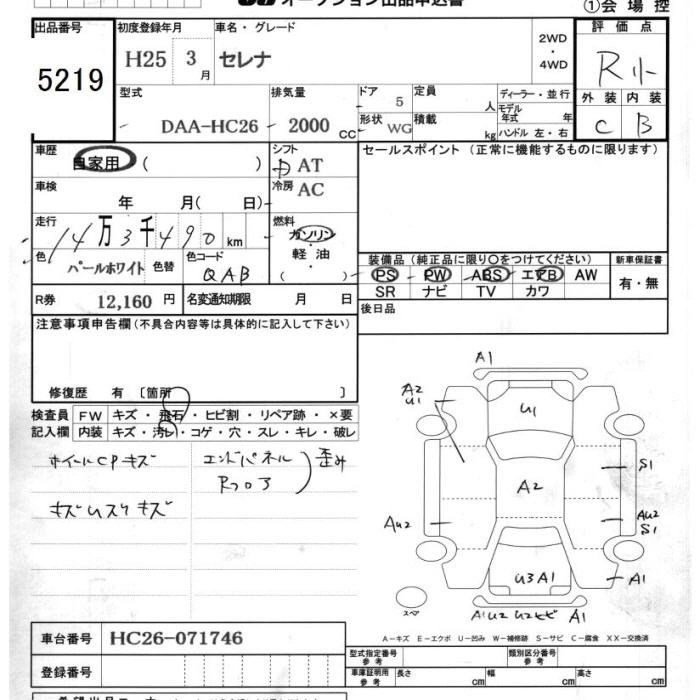 オークション出品申込書
①会場控
出品番号 初度登録年月 車名・グレード 評価点
5219 H25 3月 セレナ 2WD・4WD R小
型式 排気量 ドア 定員 ディーラー・並行 外装 内装
DAA-HC26 2000 cc 5 人 モデル年式 年 C B
形状 WG 積載 kg ハンドル 左・右
車歴 シフト セールスポイント(正常に機能するものに限ります)
自家用 ( ) 中 AT
車検 冷房 AC
年 月( 日)
走行 燃料
14万3千490km ガソリン・軽油
色 色替 色コード ( )
パールホワイト QAB
装備品(純正品に限り○をつけてください) 新車保証書
PS PW ABS エアB AW 有・無
SR ナビ TV カワ
R券 12,160 円 名変通知期限 月 日
後日品
注意事項申告欄(不具合内容等は具体的に記入して下さい)
修復歴 有〔箇所 〕
検査員 FW キズ・飛石・ヒビ割・リペア跡・×要
記入欄 内装 キズ・汚レ・コゲ・穴・スレ・キレ・破レ
ホイールCPキズ エンドパネル 歪み
Rフロア
キズ大スリキズ
A1
A2
U1
U1
S1
A2
AU2
AU2
S1
U3 A1
A1
スペア
A1U2 U2ヒビ A1
A-キズ E-エクボ U-凹み W-補修跡 S-サビ C-腐食 XX-交換済
車台番号 HC26-071746
型式指定番号 参考 類別区分番号 参考
登録番号
車庫証明用 参考 長さ cm 幅 cm 高さ cm